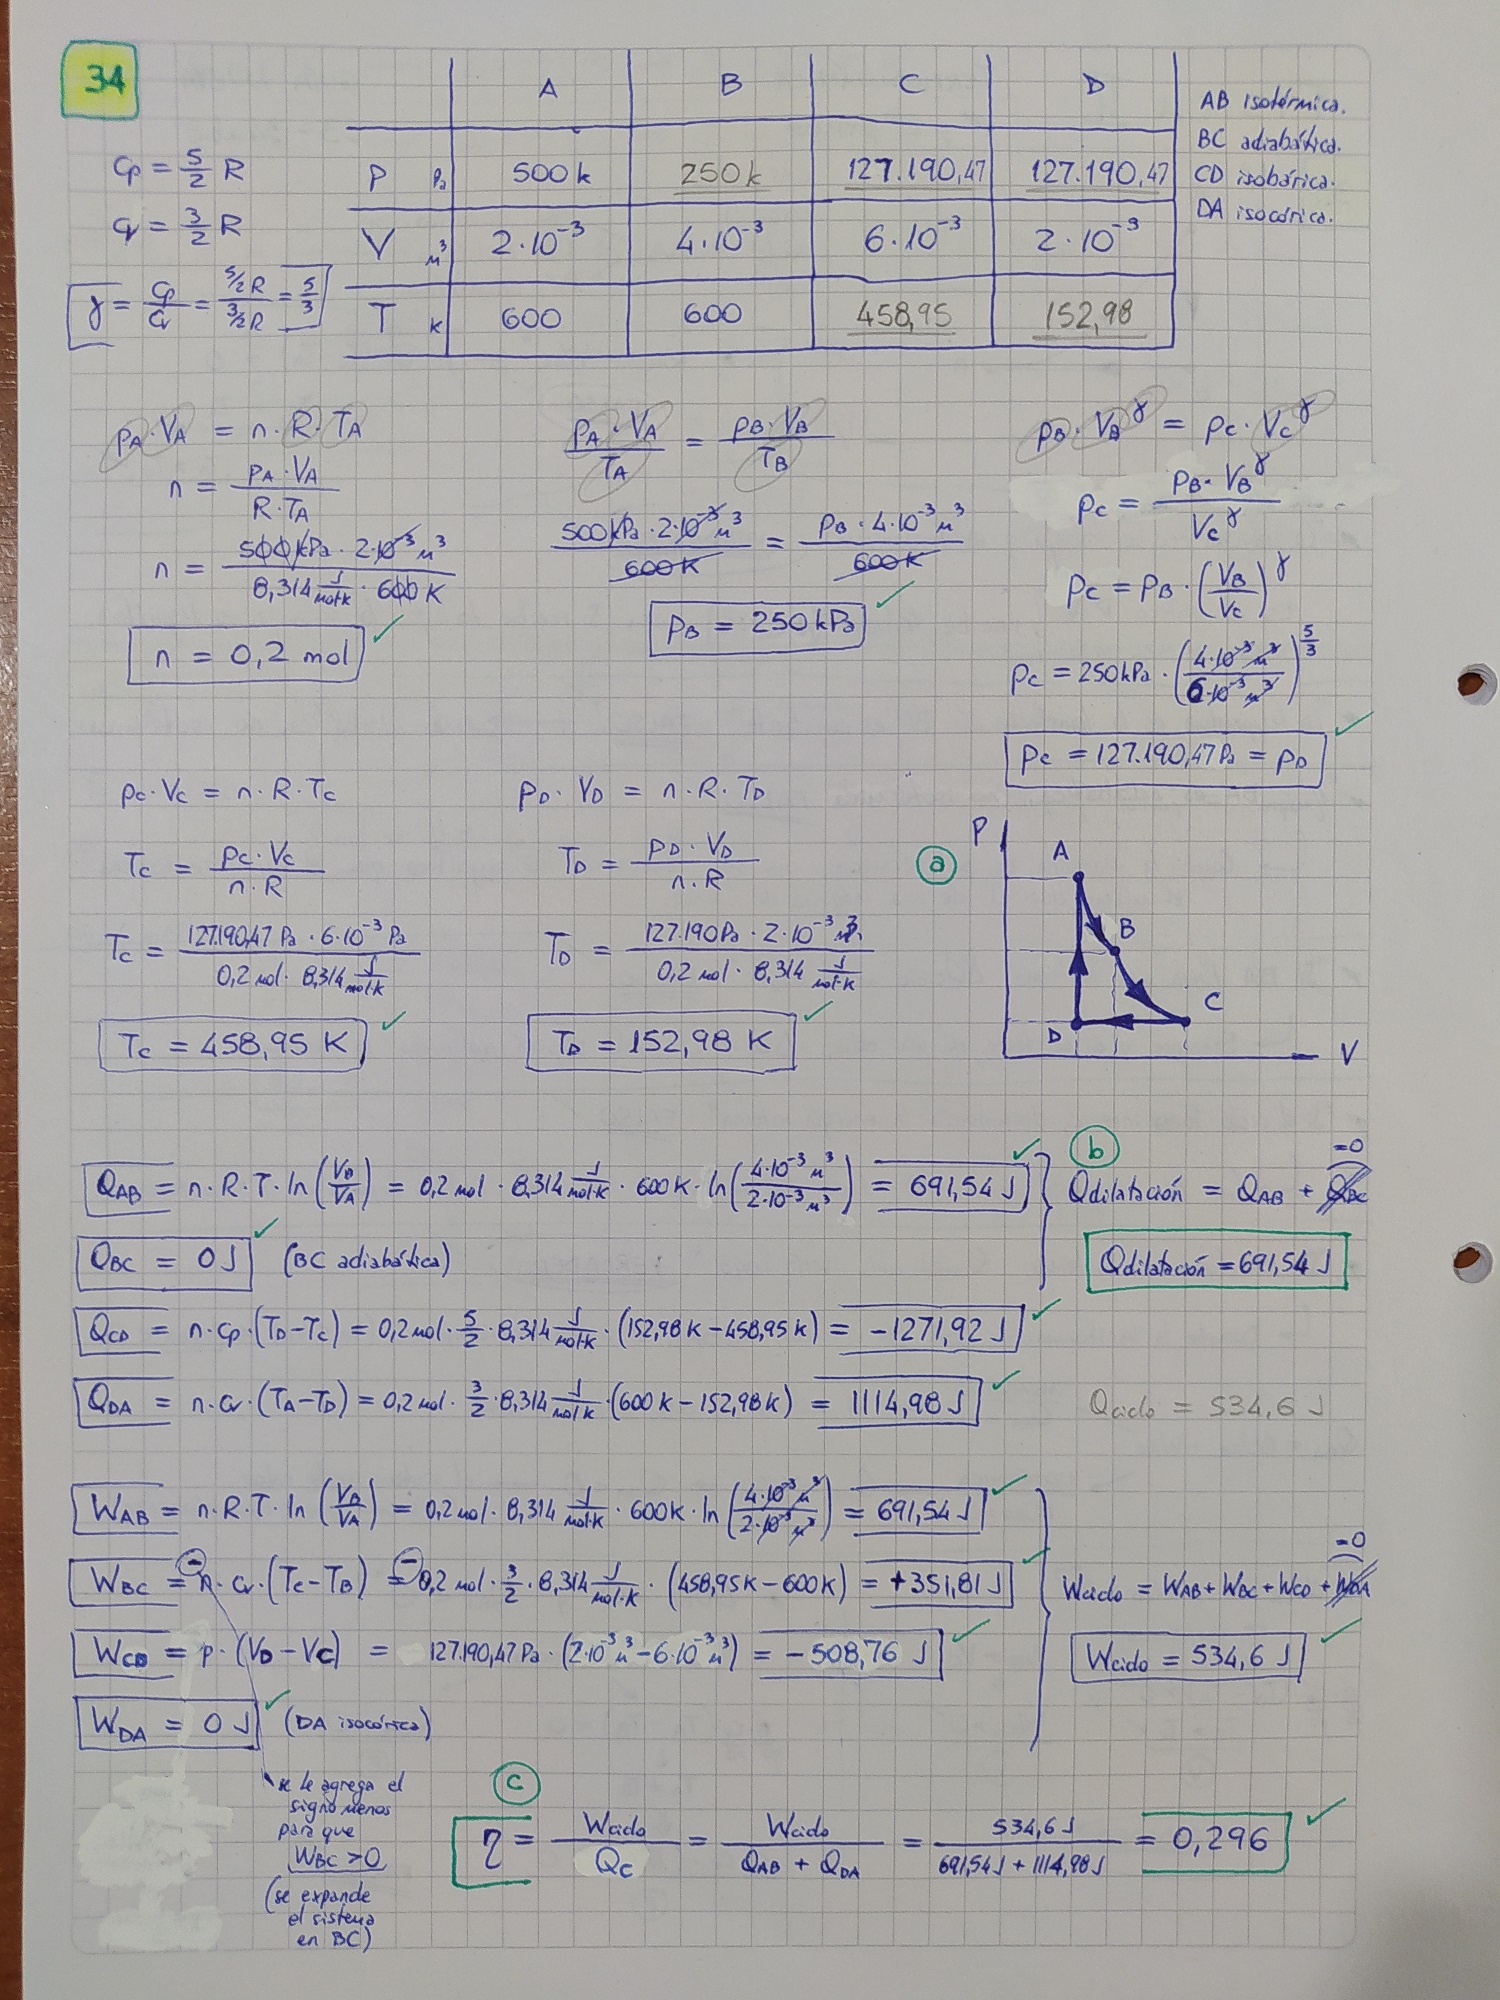 34
A B C D
AB isotérmica.
BC adiabática.
CD isobárica.
DA isocórica.
P Pa 500k 250k 127.190,47 127.190,47
V m³ 2·10⁻³ 4·10⁻³ 6·10⁻³ 2·10⁻³
T K 600 600 458,95 152,98
Cp = 5/2 R
Cv = 3/2 R
γ = Cp/Cv = (5/2 R)/(3/2 R) = 5/3
pA·VA = n·R·TA
n = (pA·VA)/(R·TA)
n = (500kPa·2·10⁻³m³)/(8,314 J/mol·K · 600K)
n = 0,2 mol
(pA·VA)/TA = (pB·VB)/TB
(500kPa·2·10⁻³m³)/600K = (pB·4·10⁻³m³)/600K
pB = 250kPa
pB·VB^γ = pC·VC^γ
pC = (pB·VB^γ)/VC^γ
pC = pB·(VB/VC)^γ
pC = 250kPa·(4·10⁻³m³/6·10⁻³m³)^5/3
pC = 127.190,47Pa = pD
pC·VC = n·R·TC
TC = (pC·VC)/(n·R)
TC = (127.190,47 Pa·6·10⁻³ Pa)/(0,2 mol·8,314 J/mol·K)
TC = 458,95 K
pD·VD = n·R·TD
TD = (pD·VD)/(n·R)
TD = (127.190Pa·2·10⁻³ m³)/(0,2 mol·8,314 J/mol·K)
TD = 152,98 K
a
P
A
B
C
D
V
QAB = n·R·T·ln(VB/VA) = 0,2mol·8,314 J/mol·K·600K·ln(4·10⁻³m³/2·10⁻³m³) = 691,54J
QBC = 0J (BC adiabática)
QCD = n·Cp·(TD−TC) = 0,2mol·5/2·8,314 J/mol·K·(152,98K−458,95K) = −1271,92J
QDA = n·Cv·(TA−TD) = 0,2mol·3/2·8,314 J/mol·K·(600K−152,98K) = 1114,98J
b
Qdilatación = QAB + QBC =0
Qdilatación = 691,54J
Qciclo = 534,6J
WAB = n·R·T·ln(VB/VA) = 0,2mol·8,314 J/mol·K·600K·ln(4·10⁻³m³/2·10⁻³m³) = 691,54J
WBC = −n·Cv·(TC−TB) = −0,2mol·3/2·8,314 J/mol·K·(458,95K−600K) = +351,81J
WCD = p·(VD−VC) = 127.190,47Pa·(2·10⁻³m³−6·10⁻³m³) = −508,76J
WDA = 0J (DA isocórica)
Wciclo = WAB+WBC+WCD+WDA =0
Wciclo = 534,6J
se le agrega el
signo menos
para que
WBC >0
(se expande
el sistema
en BC)
c
η = Wciclo/QC = Wciclo/(QAB + QDA) = 534,6J/(691,54J+1114,98J) = 0,296